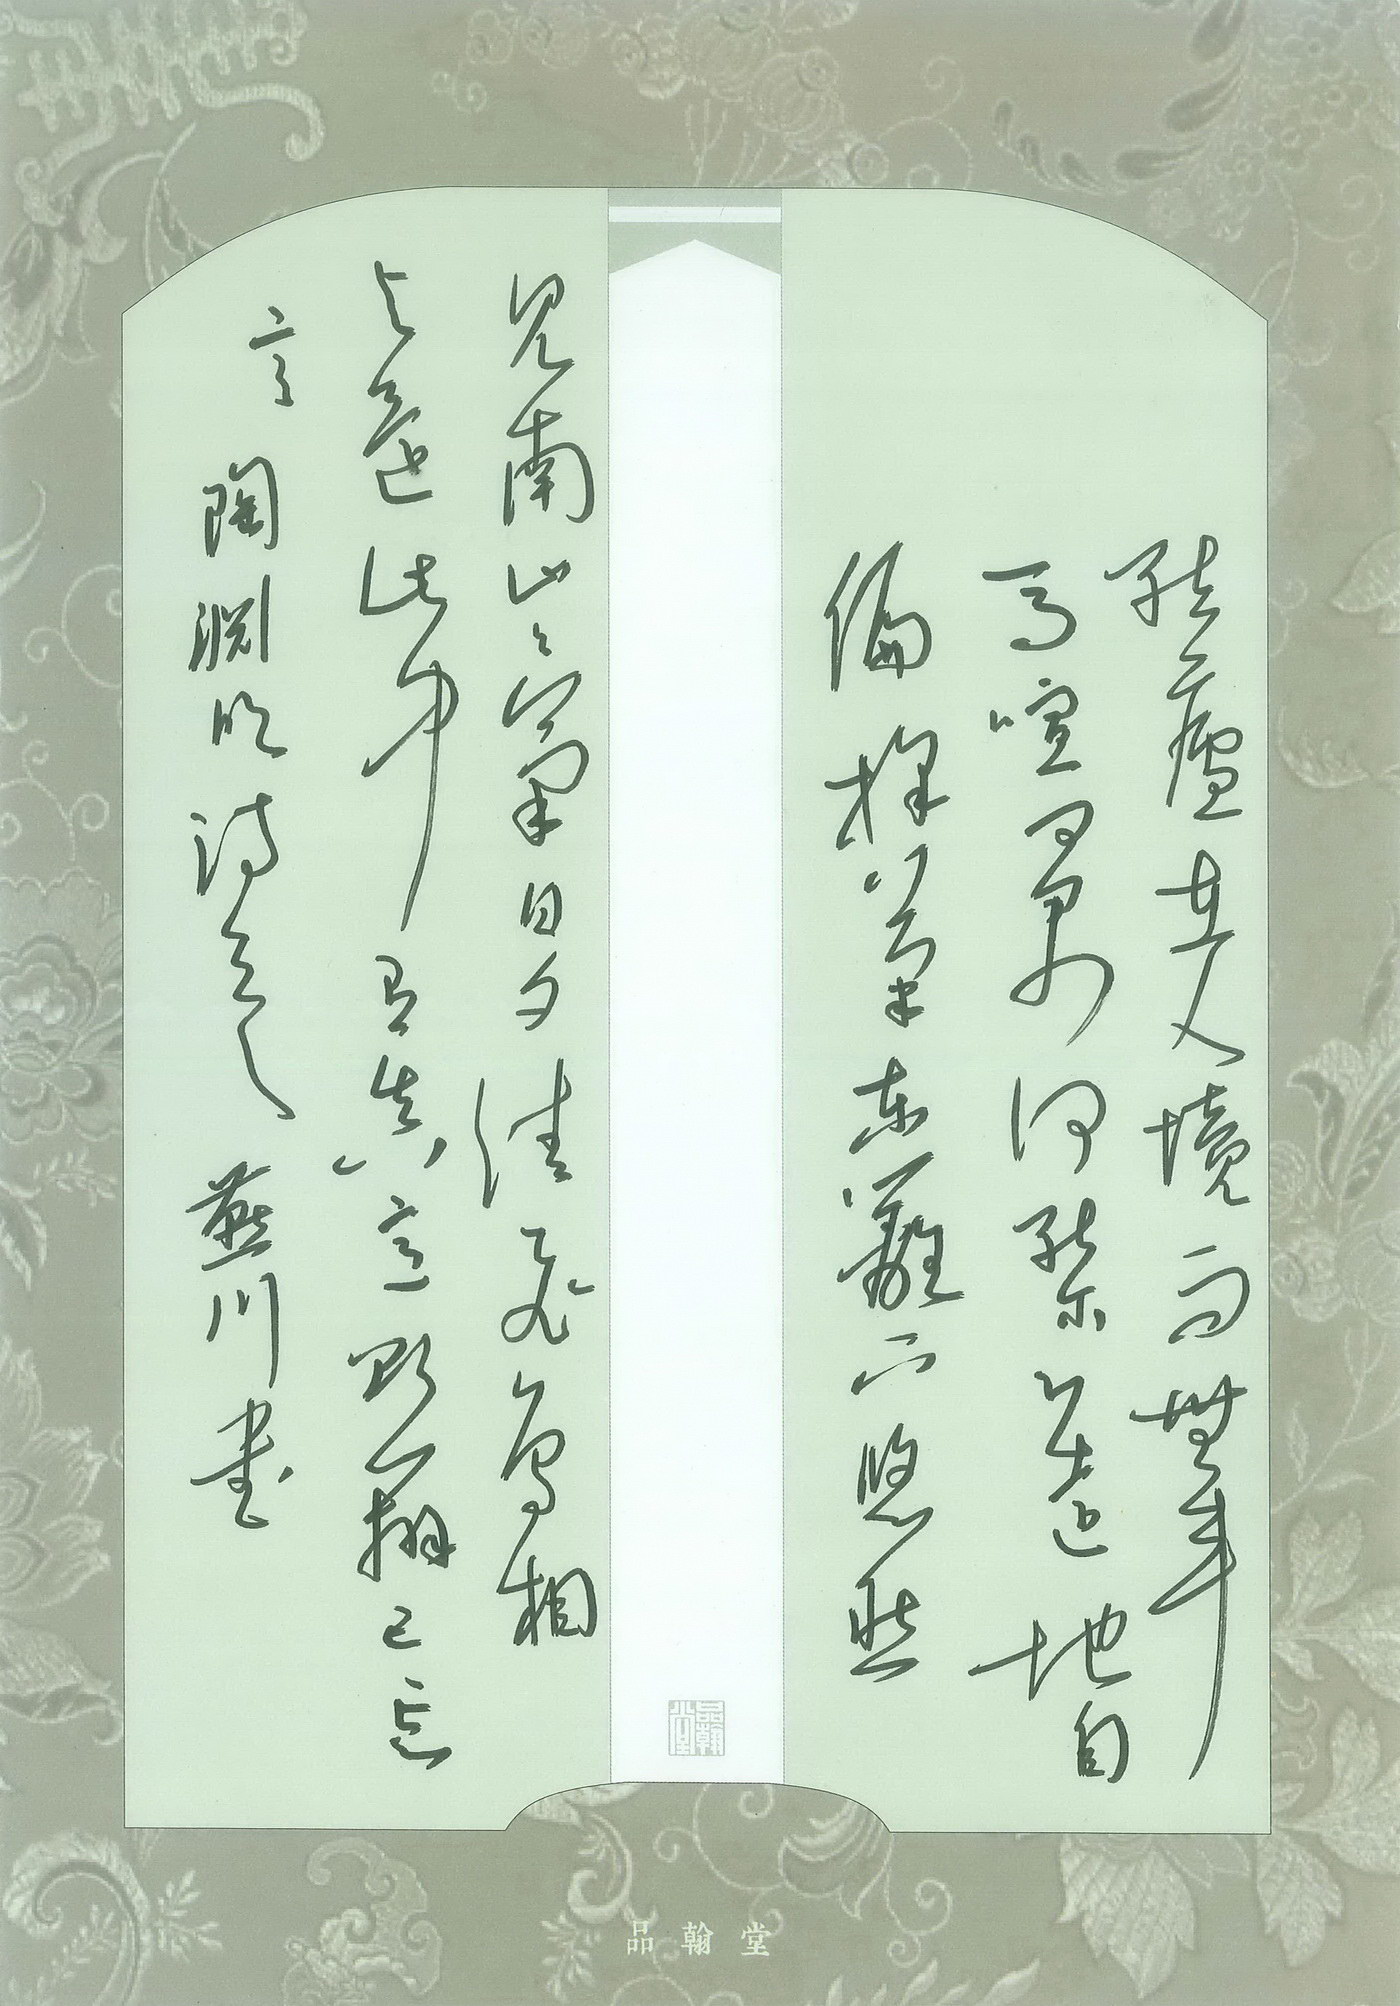 結廬在人境而無車
馬喧問君何能爾心遠地自
偏採菊東籬下悠然
見南山々氣日夕佳飛鳥相
與還此中有真意欲辨已忘
言 陶淵明詩 燕川書
品翰堂
品翰堂